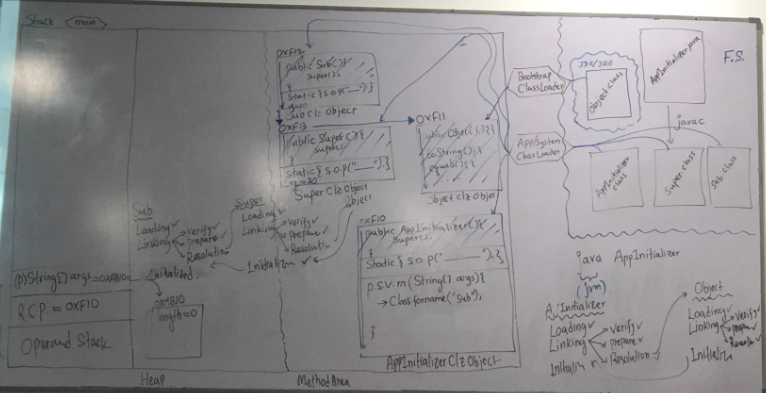 Stack
main
(P)String[] args=0xHB10
R.C.P. = 0XF10
Operand Stack
Sub
Loading✓
Linking
verify✓
prepare✓
Resolution
Initialized
0xHB10
length=0
Heap
Super
Loading✓
Linking
verify✓
prepare✓
Resolution
Initializ
Object
0XF12
public Sub(){
super();
}
static{s.o.p("___");}
Sub Clz Object
0XF13
public Super(){
super();
}
static{s.o.p("___");}
Super Clz Object
0XF11
public Object(){}
toString();
equals();
Object Clz Object
0XF10
public AppInitializer(){
super();
}
Static{s.o.p("______");}
p.s.v.m(String[] args){
→Class.forName("Sub");
}
AppInitializerClzObject
MethodArea
Bootstrap
ClassLoader
App/System
ClassLoader
JDK/JRE
Object.class
AppInitializer.java
F.S.
javac
AppInitializer
class
Super class
Sub class
java AppInitializer
(jvm)
A'Initializer
Loading✓
Linking
verify✓
prepare✓
Resolution
Object
Loading✓
Linking
verify✓
Initializ